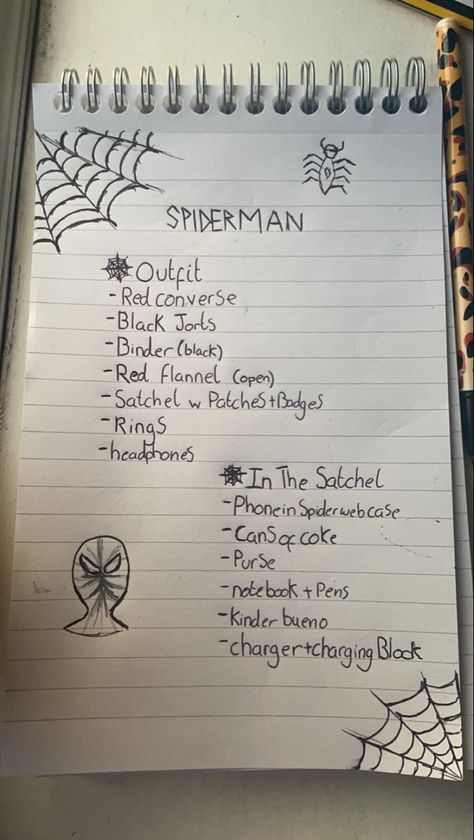 SPIDERMAN
Outfit
- Red converse
- Black Jorts
- Binder (black)
- Red flannel (open)
- Satchel w Patches + Badges
- Rings
- headphones
In The Satchel
- Phone in Spiderweb case
- Cans of coke
- Purse
- notebook + Pens
- Kinder bueno
- charger + charging Block